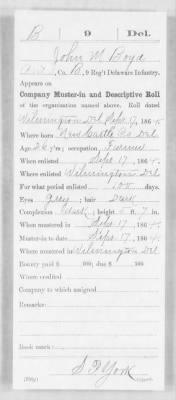 B 9 Del.
John M Boyd
, Co. B, 9 Reg't Delaware Infantry.
Appears on
Company Muster-in and Descriptive Roll
of the organization named above. Roll dated
Wilmington Del Sept 17, 1864.
Where born New Castle Co Del
Age 26 y'rs; occupation, Farmer
When enlisted Sept 17, 1864.
Where enlisted Wilmington Del
For what period enlisted 100 days
Eyes Grey; hair Dark
Complexion Dark; height 5 ft. 7 in.
When mustered in Sept 17, 1864.
Muster-in to date Sept 17, 1864.
Where mustered in Wilmington Del
Bounty paid $ 100; due $ 100
Where credited
Company to which assigned
Remarks:
Book mark:
S. P. York
Copyist.